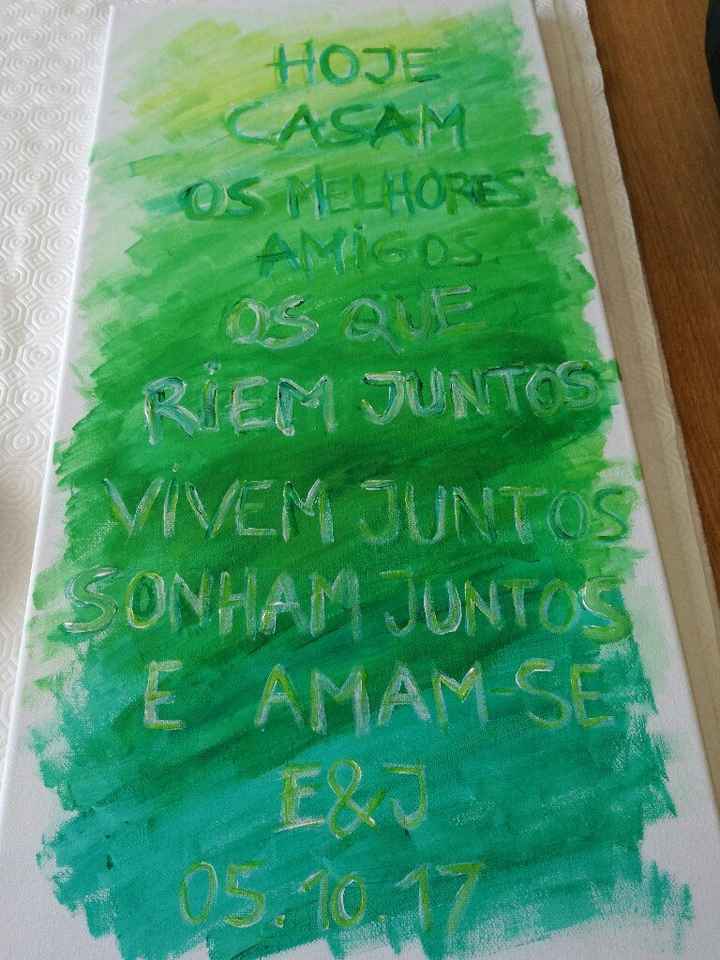 HOJE
CASAM
OS MELHORES
AMiGOS
OS QUE
RiEM JUNTOS
ViVEM JUNTOS
SONHAM JUNTOS
E AMAM-SE
E&J
05.10.17